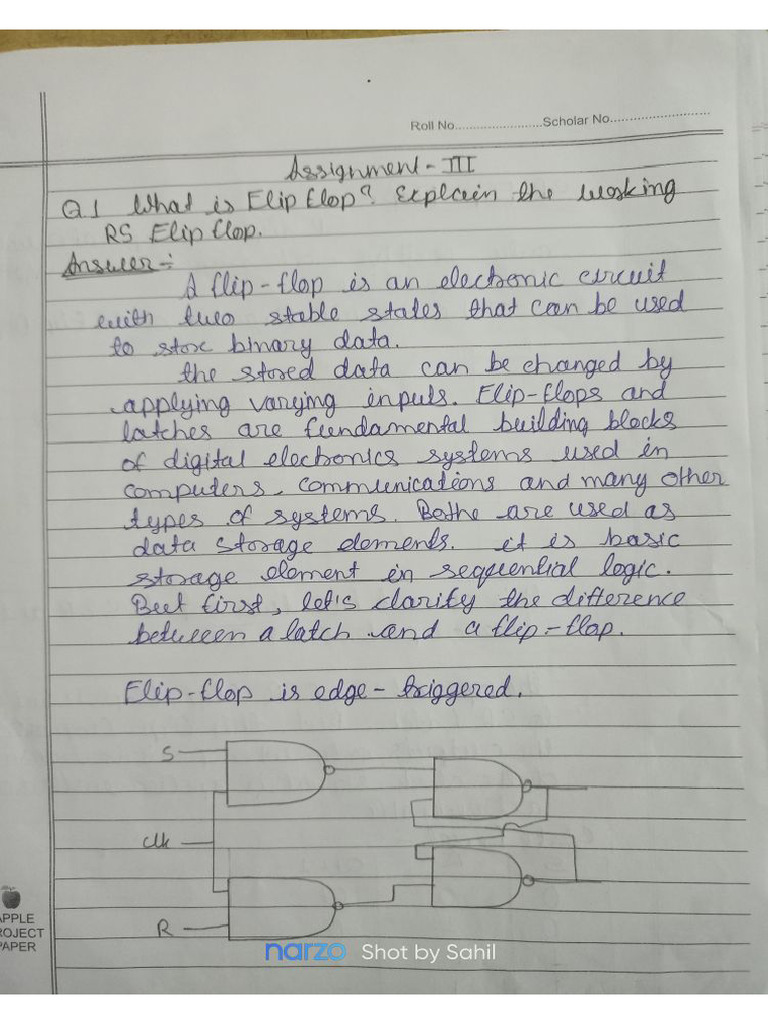 Roll No........................Scholar No..........................
Assignment - III
Q1 What is Flip flop? Explain the working
RS Flip flop.
Answer :-
A flip-flop is an electronic circuit
with two stable states that can be used
to store binary data.
the stored data can be changed by
applying varying inputs. Flip-flops and
latches are fundamental building blocks
of digital electronics systems used in
computers, communications and many other
types of systems. Bothe are used as
data storage elements. it is basic
storage element in sequential logic.
But first, let's clarify the difference
between a latch and a flip-flop.
Flip-flop is edge-triggered.
S
clk
R
APPLE
PROJECT
PAPER
narzo Shot by Sahil